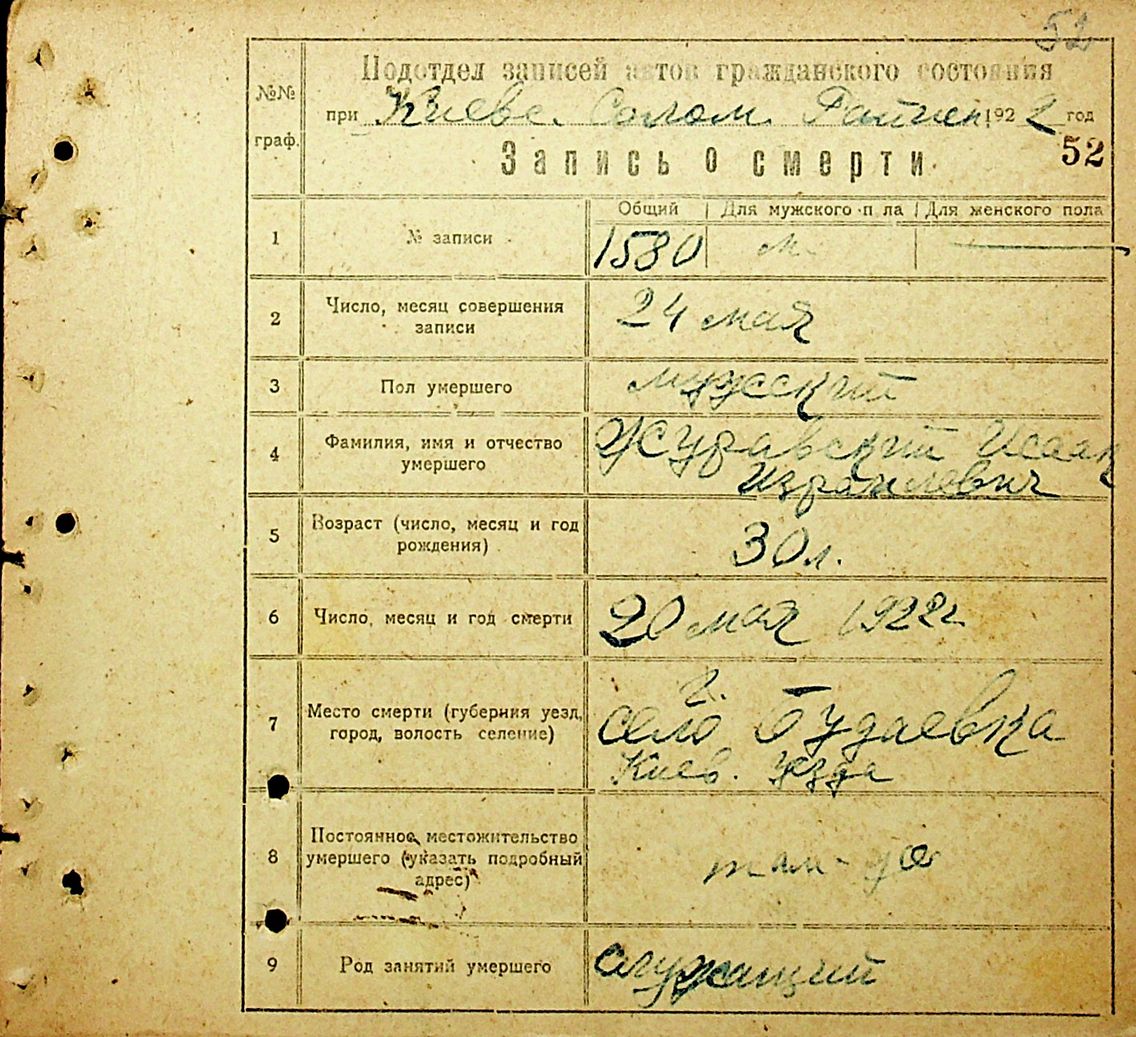 52
Подотдел записей актов гражданского состояния
№№ граф.
при Киеве. Солом. Райисп. 1922 год
52
Запись о смерти
Общий Для мужского п ла Для женского пола
1 № записи 1530 м. —
2 Число, месяц совершения записи 24 мая
3 Пол умершего мужский
4 Фамилия, имя и отчество умершего Журавский Исаак
Израилевич
5 Возраст (число, месяц и год рождения) 30 л.
6 Число, месяц и год смерти 20 мая 1922 г
7 Место смерти (губерния уезд, город, волость селение) село Будаевка
Киев. уезда
8 Постоянное местожительство умершего (указать подробный адрес) там-же
9 Род занятий умершего служащий